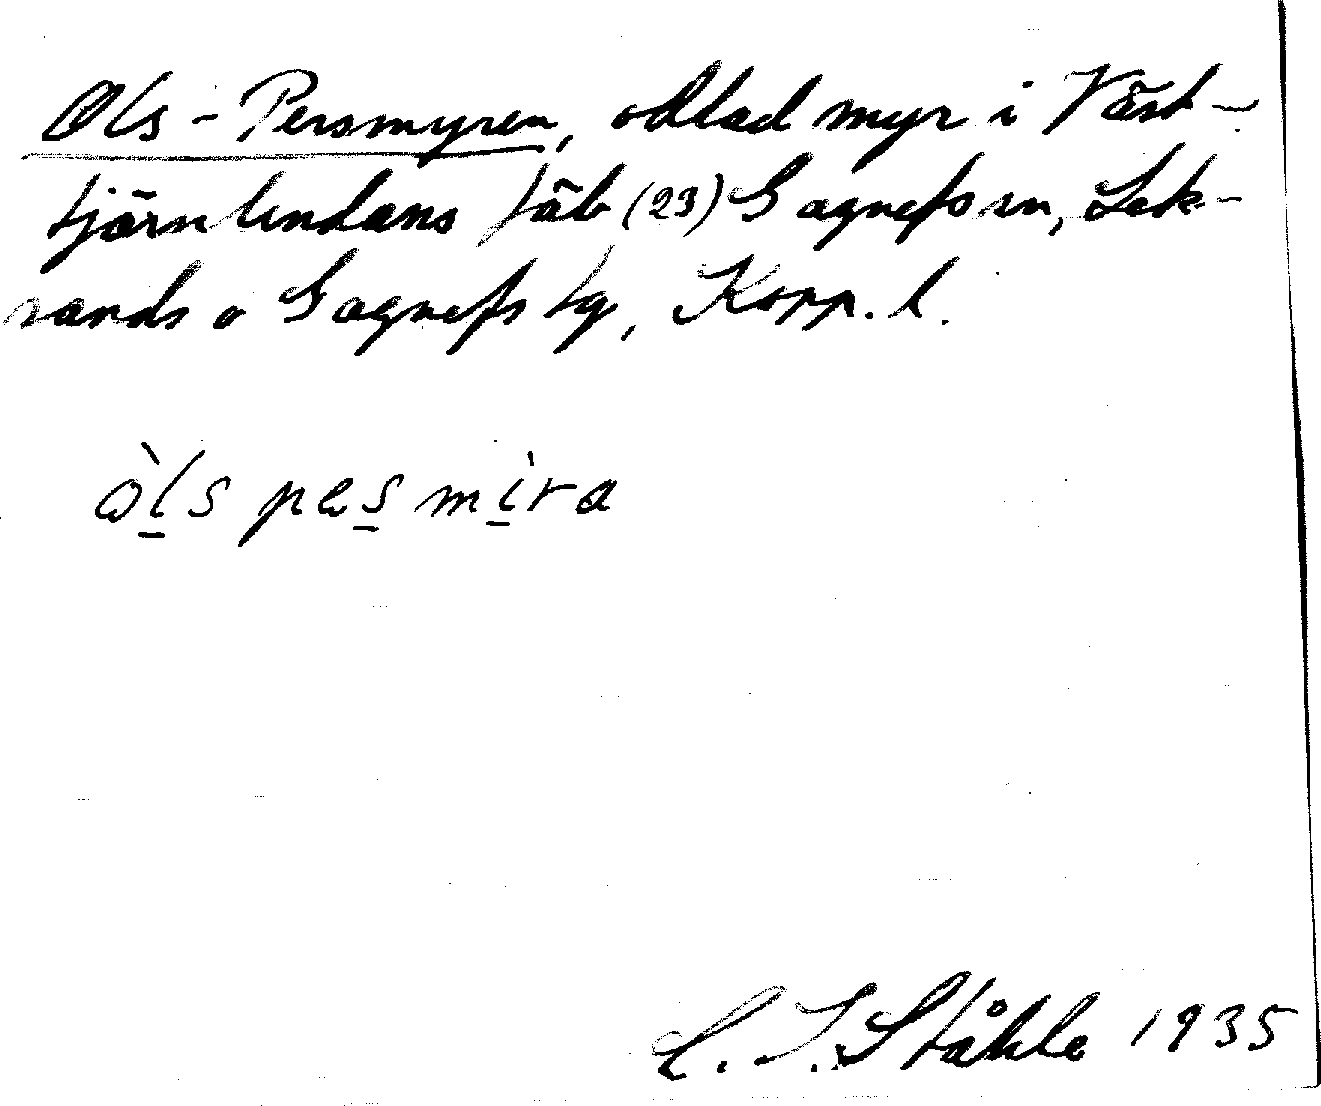 Ols-Persmyren, odlad myr i Väst-
tjärnlindans fäb (23) Gagnefs sn, Lek-
sands o Gagnefs tg, Kopp. l.
òl̲s pes̲ mì̲ra
C. I. Ståhle 1935